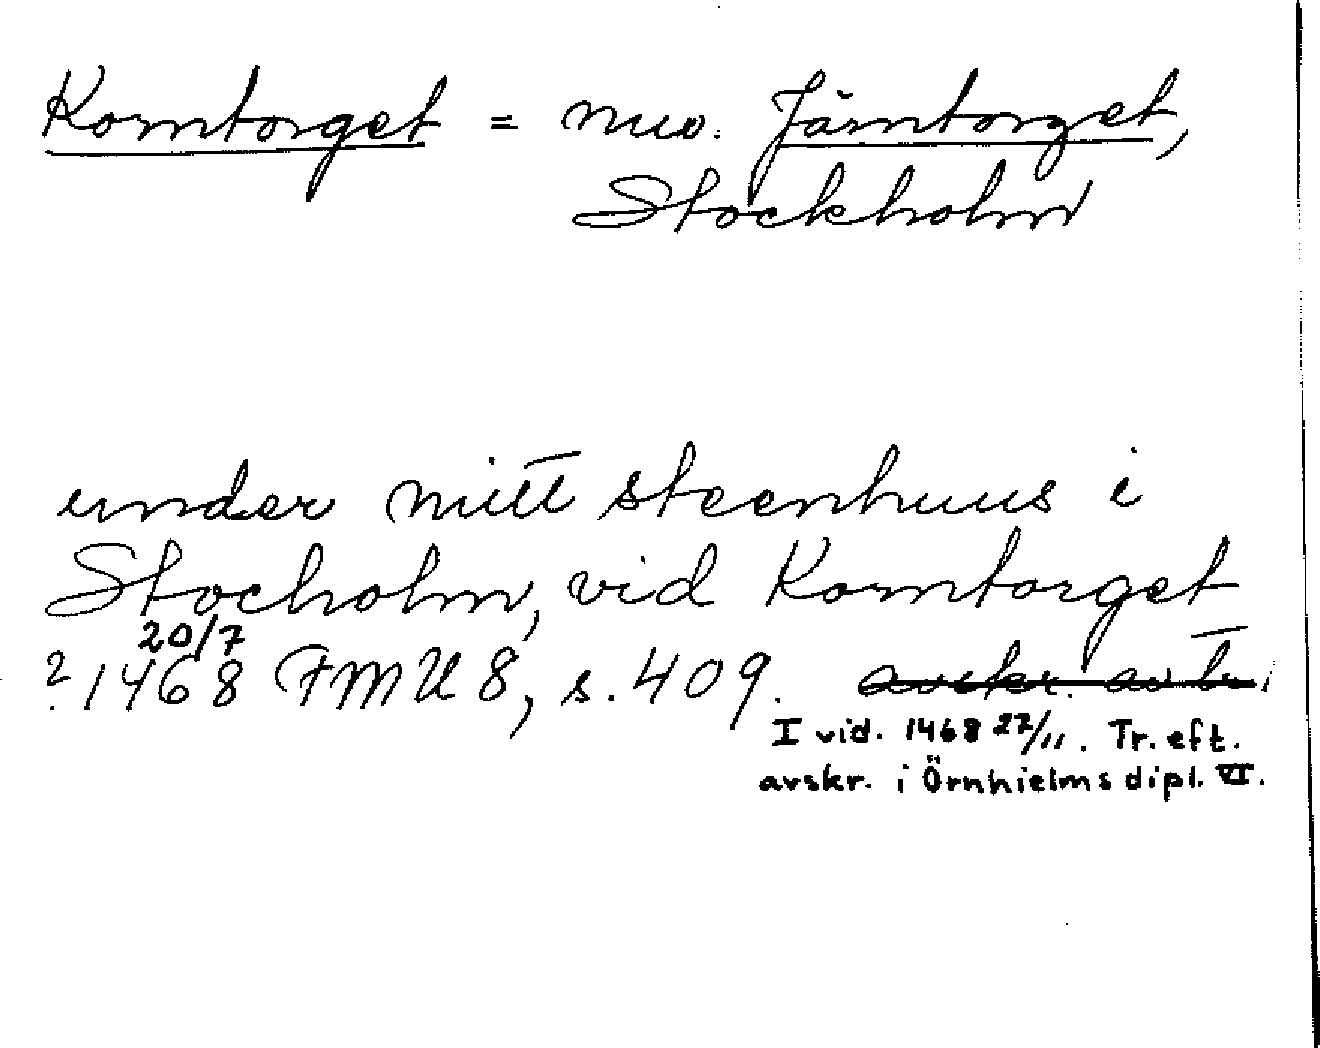 Korntorget = nuv. Järntorget,
Stockholm
under mitt steenhuus i
Stocholm, vid Korntorget
20/7
? 1468 FMU 8, s. 409. avskr. av tr.
I vid. 1468 27/11. Tr. eft.
avskr. i Örnhielms dipl. VI.